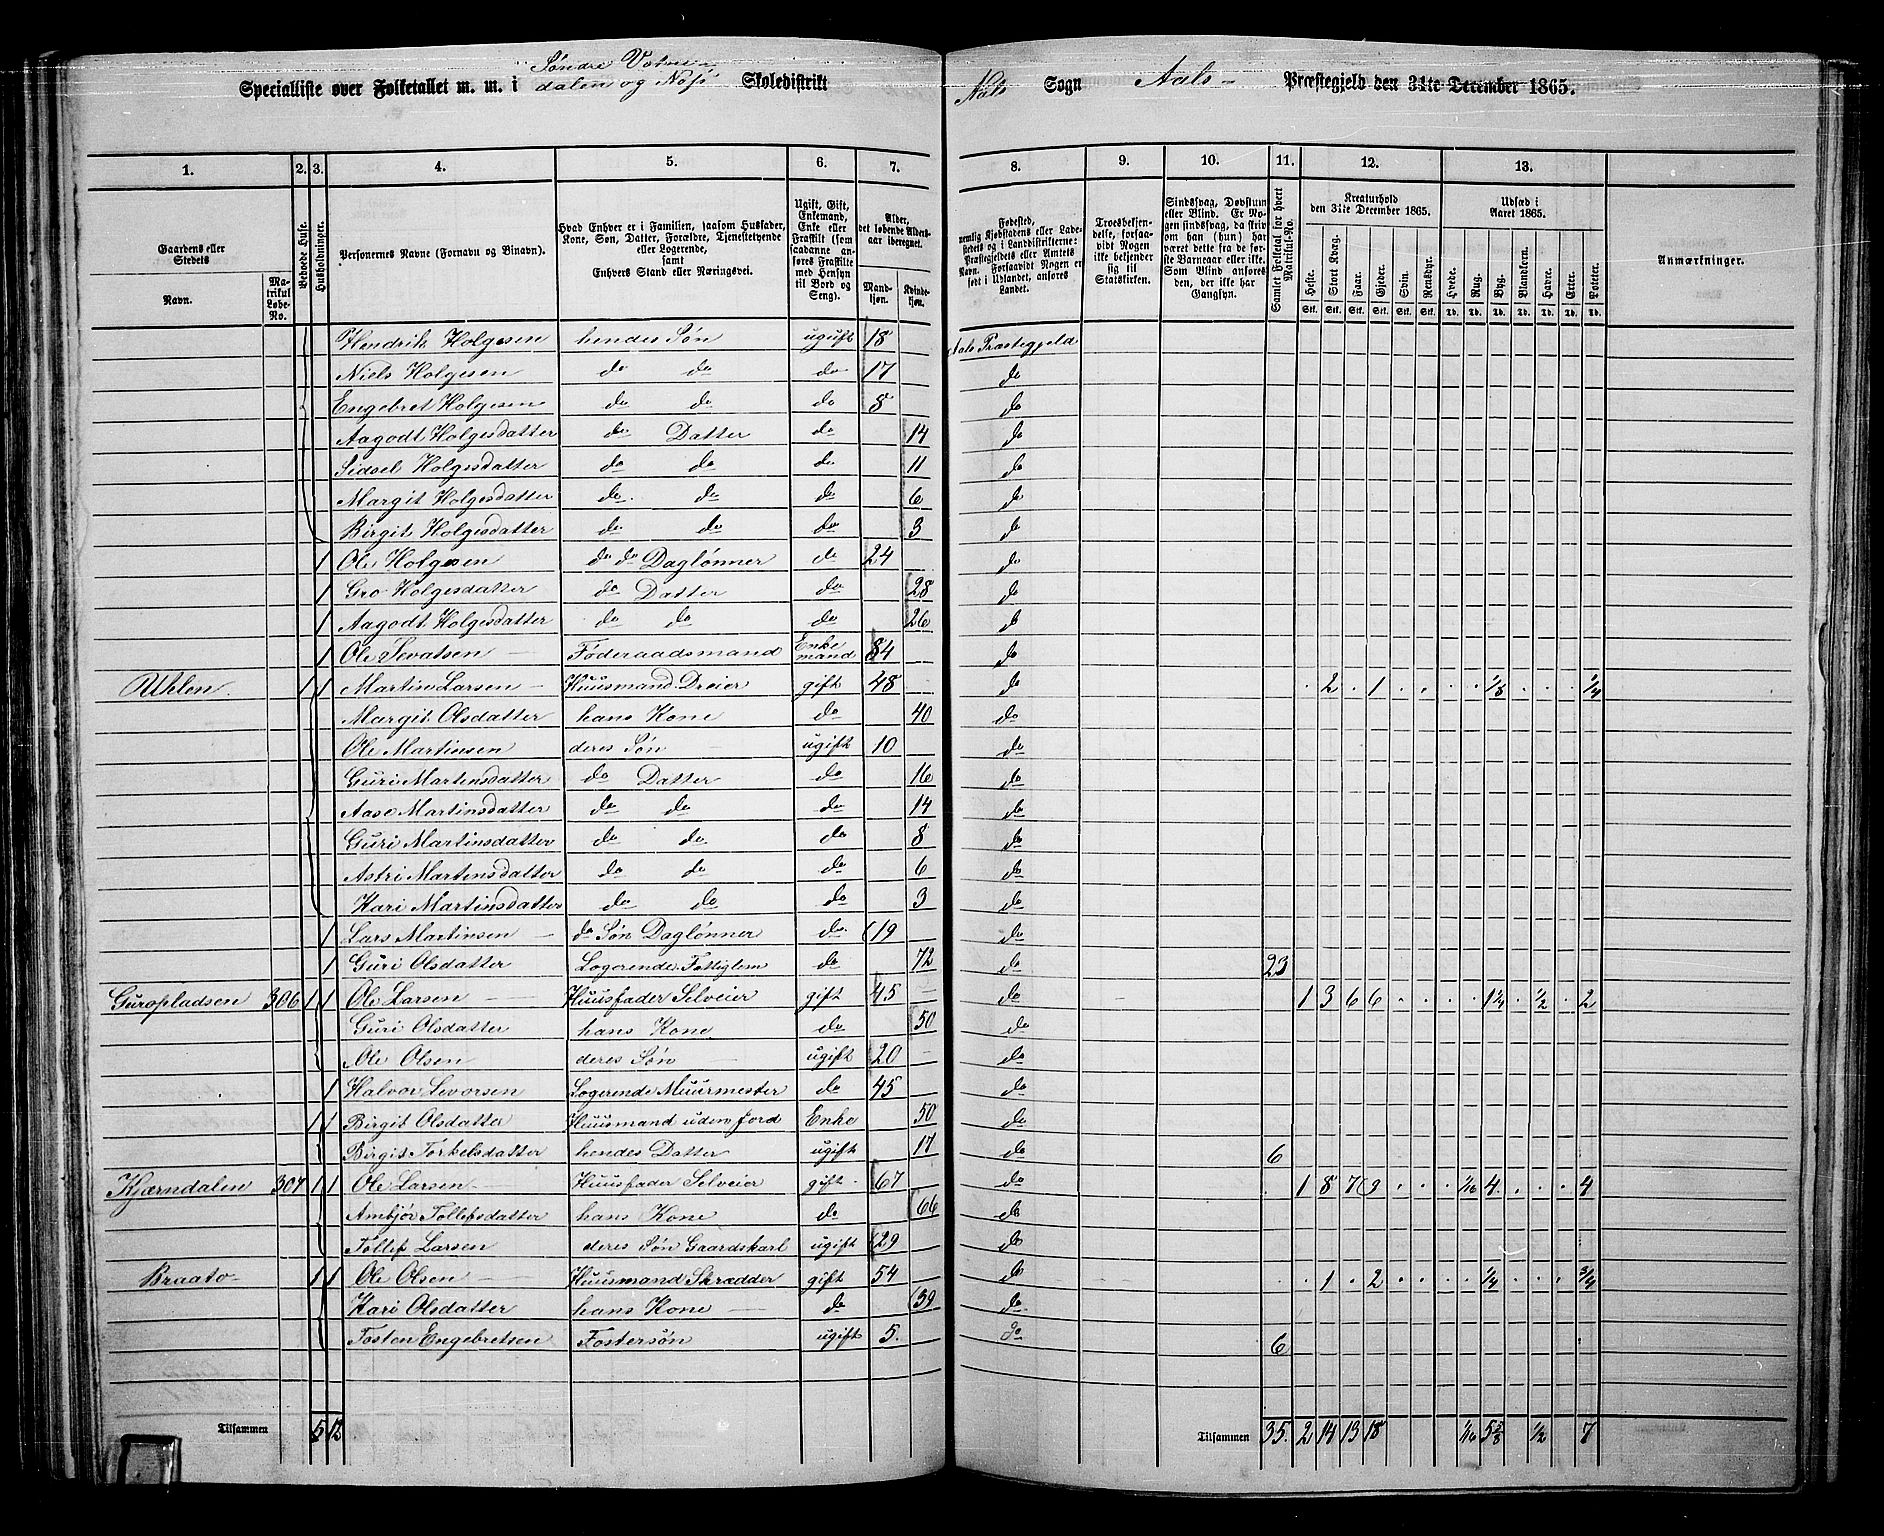 Specialliste over Folketallet m. m. i Søndre Votnedalen og Næs Skoledistrikt
Aals Sogn Aals Præstegjeld den 31te December 1865.
1. 2. 3. 4. 5. 6. 7. 8. 9. 10. 11. 12. 13.
Gaardens eller Stedets
Navn.
Matrikul Løbe-No.
Beboede Huse.
Husholdninger.
Personernes Navne (Fornavn og Binavn).
Hvad Enhver er i Familien, saasom Husfader, Kone, Søn, Datter, Forældre, Tjenestetyende eller Logerende, samt Enhvers Stand eller Næringsvei.
Ugift, Gift, Enkemand, Enke eller Fraskilt (som saadanne anføres Fraskilte med Hensyn til Bord og Seng).
Alder, det løbende Aldersaar iberegnet.
Mandkjøn.
Kvindekjøn.
Fødested, nemlig Kjøbstadens eller Ladestedets og i Landdistrikterne: Præstegjeldets eller Amtets Navn. Forsaavidt Nogen er født i Udlandet, anføres Landet.
Troesbekjendelse, forsaavidt Nogen ikke bekjender sig til Statskirken.
Sindssvag, Døvstum eller Blind. Er Nogen sindssvag, da skriv om han (hun) har været dette fra sidste Barneaar eller ikke. Som Blind ansøres den, der ikke har Gangsyn.
Samlet Folketal for hvert Matrikul-No.
Kreaturhold den 31te December 1865.
Heste. Stort Kvæg. Faar. Gjeder. Svin. Rensdyr.
Stk. Stk. Stk. Stk. Stk. Stk.
Udsæd i Aaret 1865.
Hvede. Rug. Byg. Blandkorn. Havre. Erter. Poteter.
Td. Td. Td. Td. Td. Td. Td.
Anmærkninger.
Hendrik Holgesen hendes Søn ugift 18 Aals Præstegjeld
Niels Holgesen do do do 17 do
Engebret Holgesen do do do 8 do
Aagodt Holgesdatter do Datter do 14 do
Sidsel Holgesdatter do do do 11 do
Margit Holgesdatter do do do 6 do
Birgit Holgesdatter do do do 3 do
1 Ole Holgesen do do Daglønner do 24 do
1 Gro Holgesdatter do Datter do 28 do
1 Aagodt Holgesdatter do do do 26 do
1 Ole Sevatsen Føderaadsmand Enkemand 84 do
Uhlen. 1 1 Martin Larsen Huusmand Dreier gift 48 do . 2 . 1 . . . . 1/8 . . . 1/4
Margit Olsdatter hans Kone do 40 do
Ole Martinsen deres Søn ugift 10 do
Guri Martinsdatter do Datter do 16 do
Aase Martinsdatter do do do 14 do
Guri Martinsdatter do do do 8 do
Astri Martinsdatter do do do 6 do
Kari Martinsdatter do do do 3 do
1 Lars Martinsen do Søn Daglønner do 19 do
1 Guri Olsdatter Logerende Fattiglem do 72 do 23
Guropladsen 306 1 1 Ole Larsen Huusfader Selveier gift 45 do 1 3 6 6 . . . . 1 1/4 . 1/2 . 2
Guri Olsdatter hans Kone do 50 do
Ole Olsen deres Søn ugift 20 do
1 Halvor Sevorsen Logerende Muurmester do 45 do
1 1 Birgit Olsdatter Huusmand uden Jord Enke 50 do
Birgit Torkelsdatter hendes Datter ugift 17 do 6
Kjærndalen 307 1 1 Ole Larsen Huusfader Selveier gift 67 do 1 8 7 3 . . . 1/16 4 . . . 4
Ambjør Tollefsdatter hans Kone do 66 do
Tollef Larsen deres Søn Gaardskarl ugift 29 do
Braato 1 1 Ole Olsen Huusmand Skrædder gift 54 do . 1 . 2 . . . . 1/4 . . . 3/4
Kari Olsdatter hans Kone do 39 do
Tosten Engebretsen Fostersøn ugift 5. do 6
Tilsammen 5 12 Tilsammen 35. 2 14 13 18 1/16 5 5/8 1/2 7